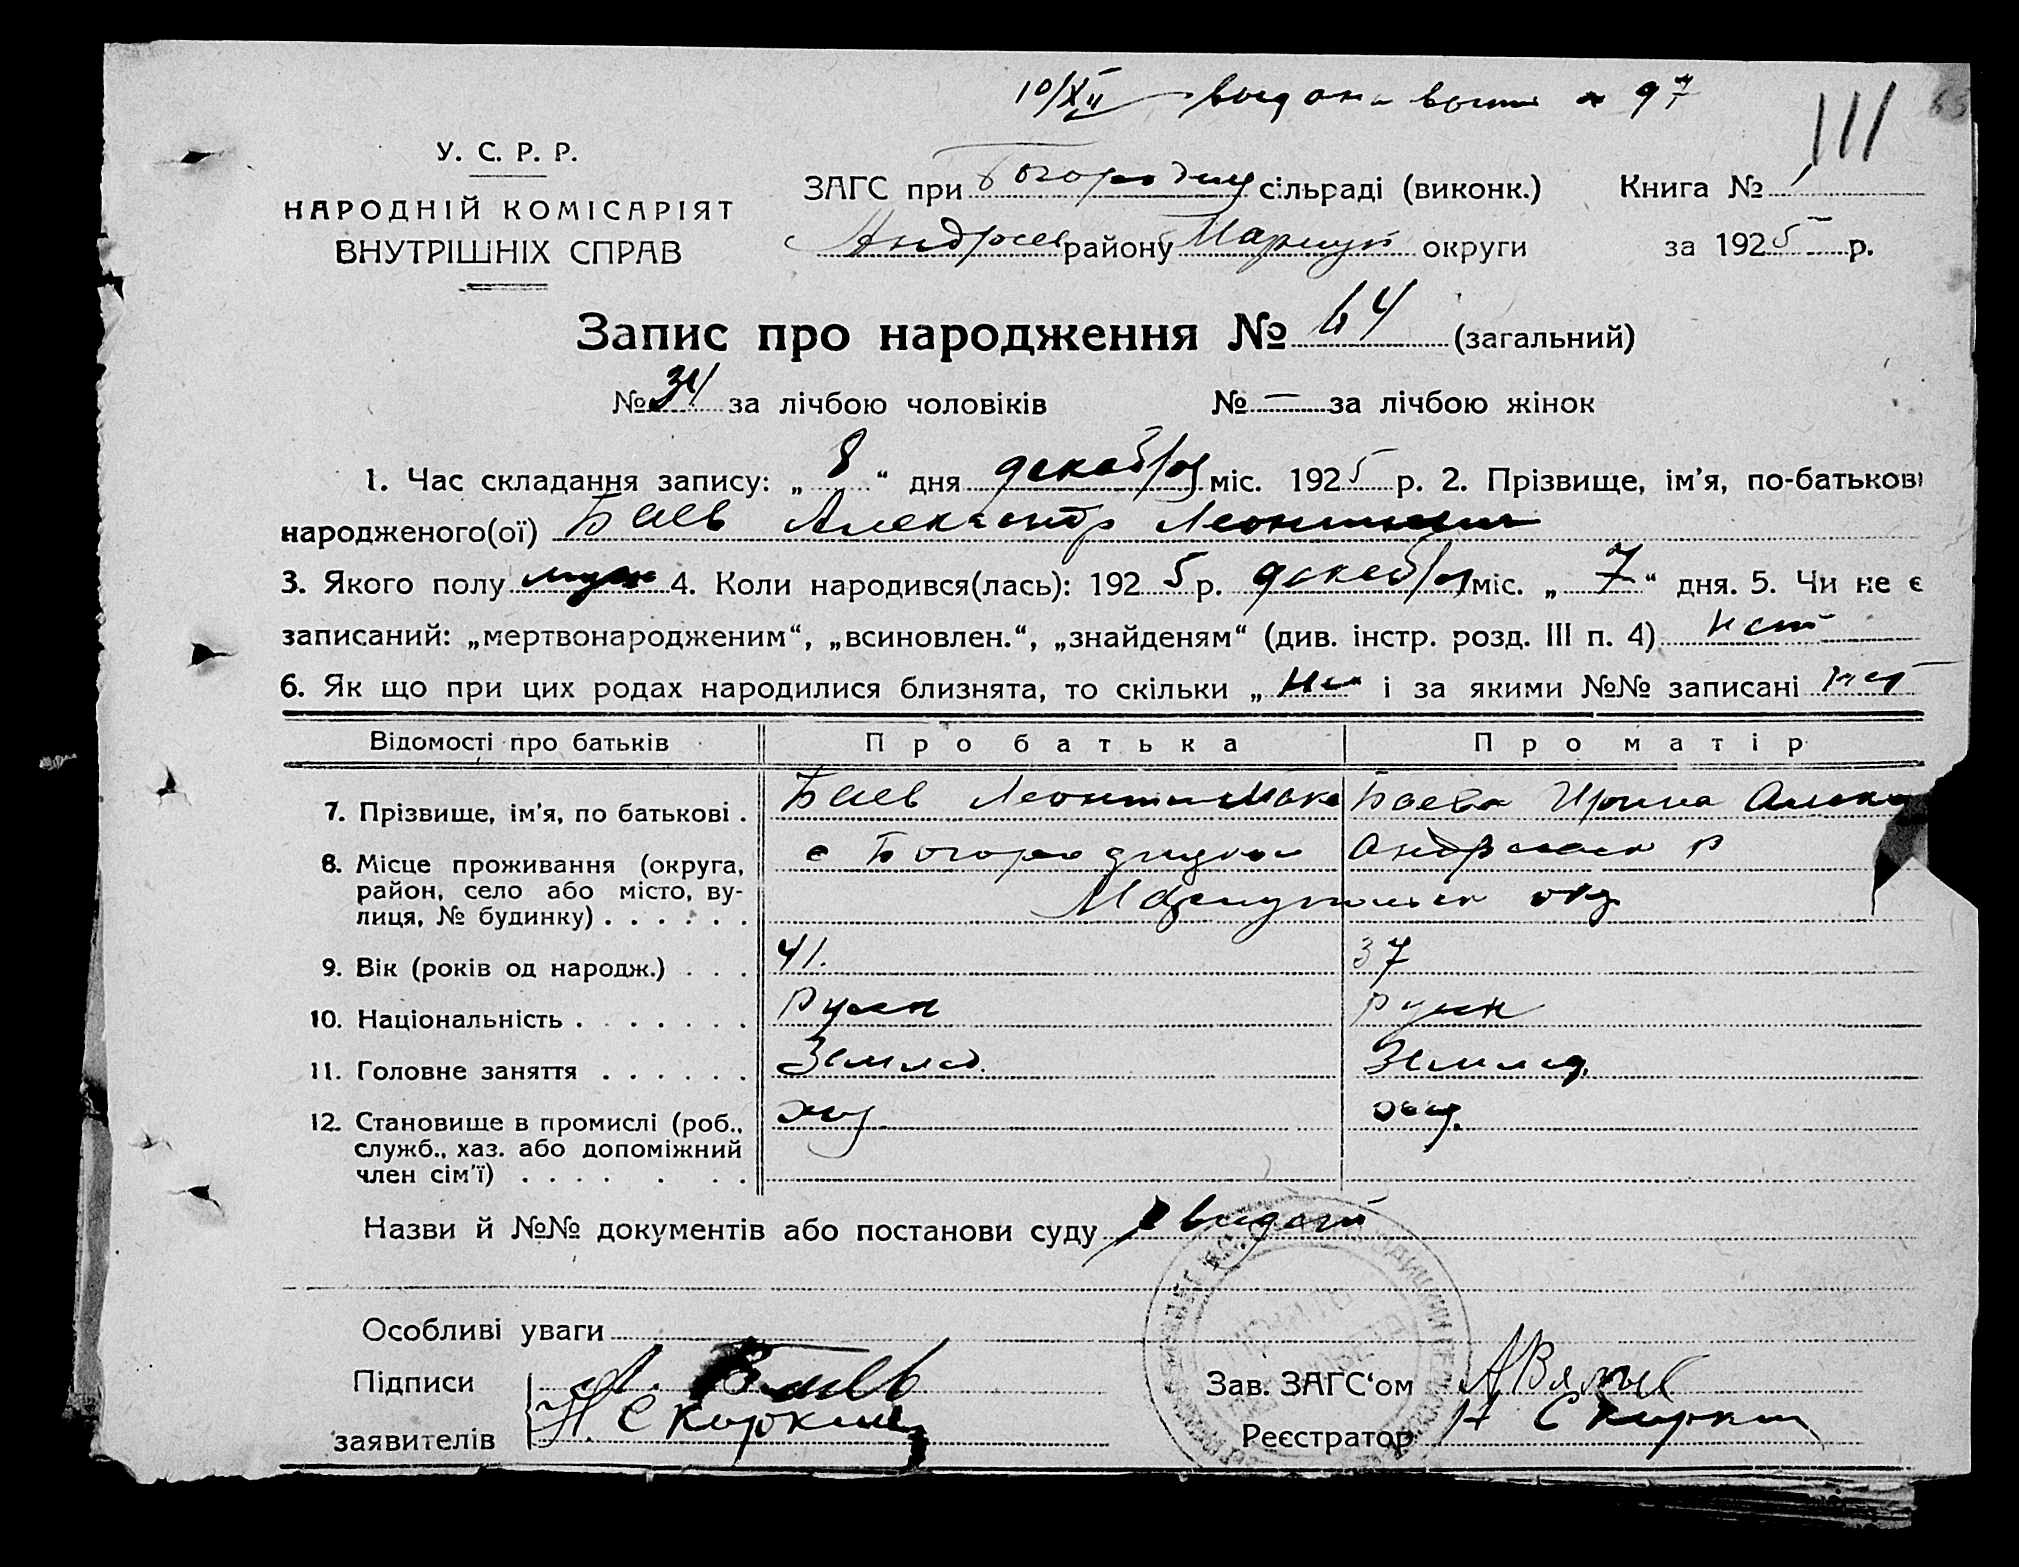 10/XII выдана вып № 97
111
У. С. Р. Р.
НАРОДНІЙ КОМІСАРІЯТ
ВНУТРІШНІХ СПРАВ
ЗАГС при Богородиц сільраді (виконк.) Книга №
Андреев району Мариуп округи за 1925 р.
Запис про народження № 64 (загальний)
№ 34 за лічбою чоловіків № — за лічбою жінок
1. Час складання запису: „8“ дня декабря міс. 1925 р. 2. Прізвище, ім'я, по-батькові
народженого(ої) Баев Александр Леонтиевич
3. Якого полу мужск 4. Коли народився(лась): 1925 р. декабря міс. „7“ дня. 5. Чи не є
записаний: „мертвонародженим“, „всиновлен.“, „знайденям“ (див. інстр. розд. III п. 4) нет
6. Як що при цих родах народилися близнята, то скільки „нет і за якими №№ записані нет
Відомості про батьків Про батька Про матір
7. Прізвище, ім'я, по батькові . Баев Леонти Мака Баева Ирина Алекс
8. Місце проживання (округа, с Богородицкое Андреевск р
район, село або місто, ву-
лиця, № будинку) . . . . . . Мариупольск окр
9. Вік (років од народж.) . . . 41. 37
10. Національність . . . . . . . русск русск
11. Головне заняття . . . . . . Землед. Землед.
12. Становище в промислі (роб.,
служб., хаз. або допоміжний
член сім'ї) . . . . . . .
Назви й №№ документів або постанови суду
Особливі уваги
Підписи Л. Баев Зав. ЗАГС'ом
заявителів Н Скоркин Реєстратор Н Скоркин